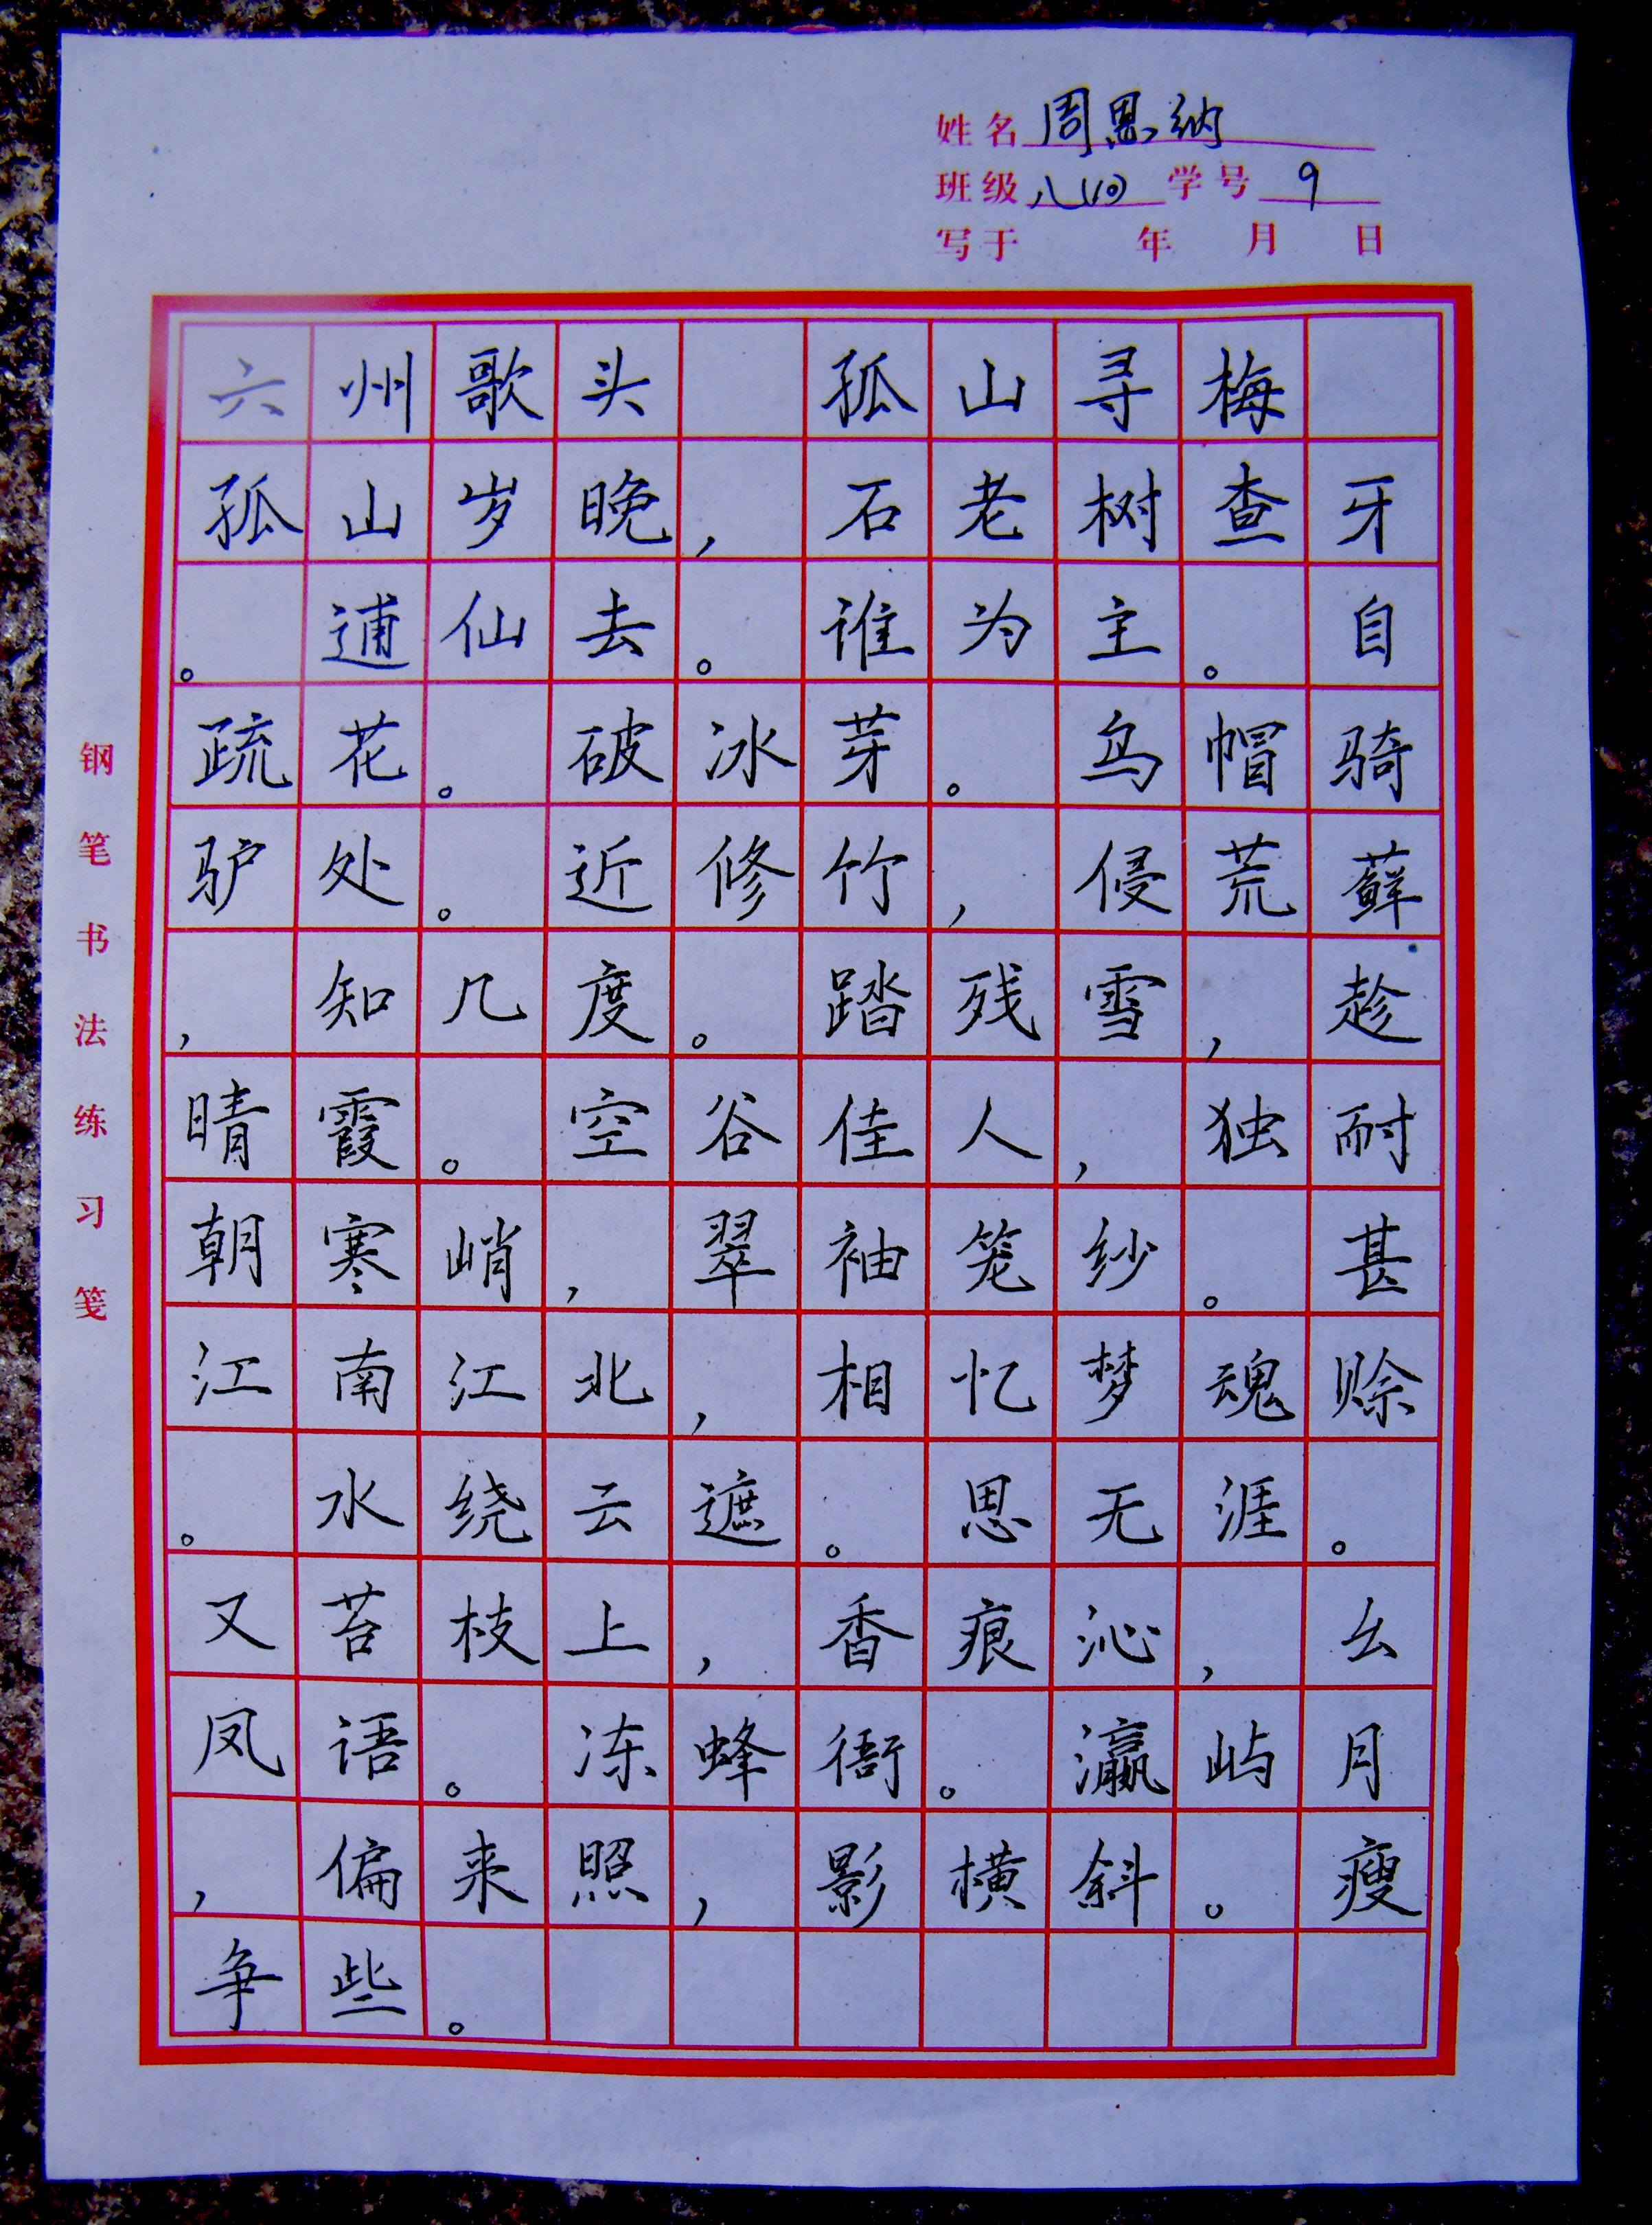 姓名 周恩纳
班级 八(10) 学号 9
写于 年 月 日
六州歌头 孤山寻梅
孤山岁晚，石老树查牙
。逋仙去。谁为主。自
疏花。破冰芽。乌帽骑
驴处。近修竹，侵荒藓
，知几度。踏残雪，趁
晴霞。空谷佳人，独耐
朝寒峭，翠袖笼纱。甚
江南江北，相忆梦魂赊
。水绕云遮。思无涯。
又苔枝上，香痕沁，幺
凤语。冻蜂衙。瀛屿月
，偏来照，影横斜。瘦
争些。
钢笔书法练习笺